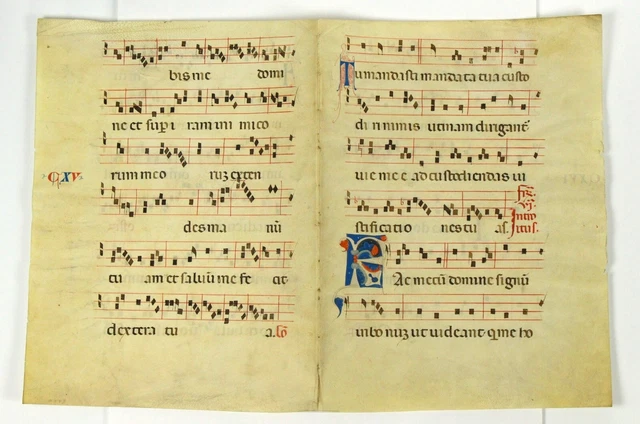 bis me domi
ne et sup i ram ini mico
CXV
rum meo ruz exten
des ma nū
tu am et saluū me fe cit
dextera tu a. Cō
Tu mandasti mandata tua custo
di ri nimis utinam dirigant
uie mee ad custodiendas iu
stificatio nes tu as.
VI
Intro
itus.
Fac mecū domine signū
in bo nuz ut uideant q me ho